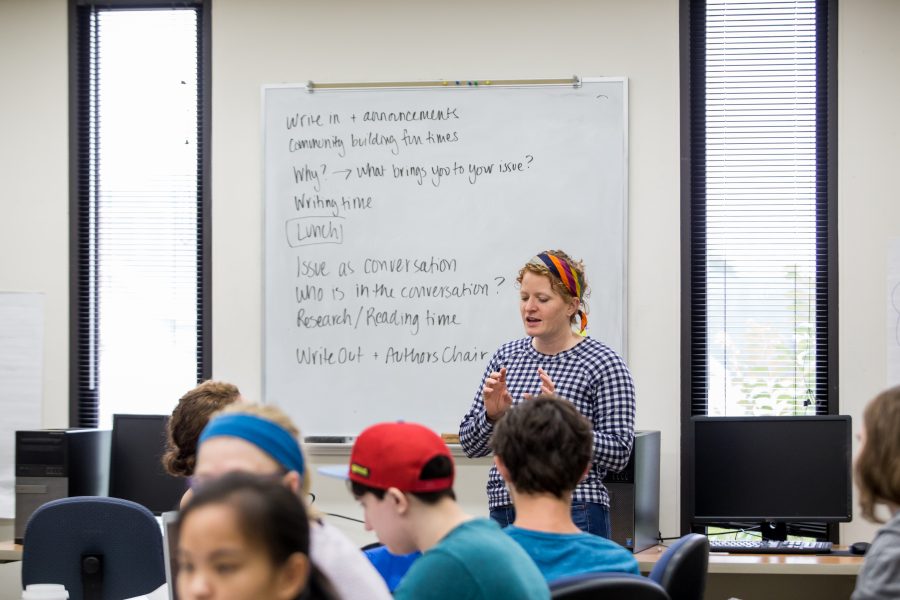 Write in + announcements
Community building fun times
Why? → What brings you to your issue?
Writing time
Lunch
Issue as conversation
Who is in the conversation?
Research/Reading time
Write Out + Authors Chair